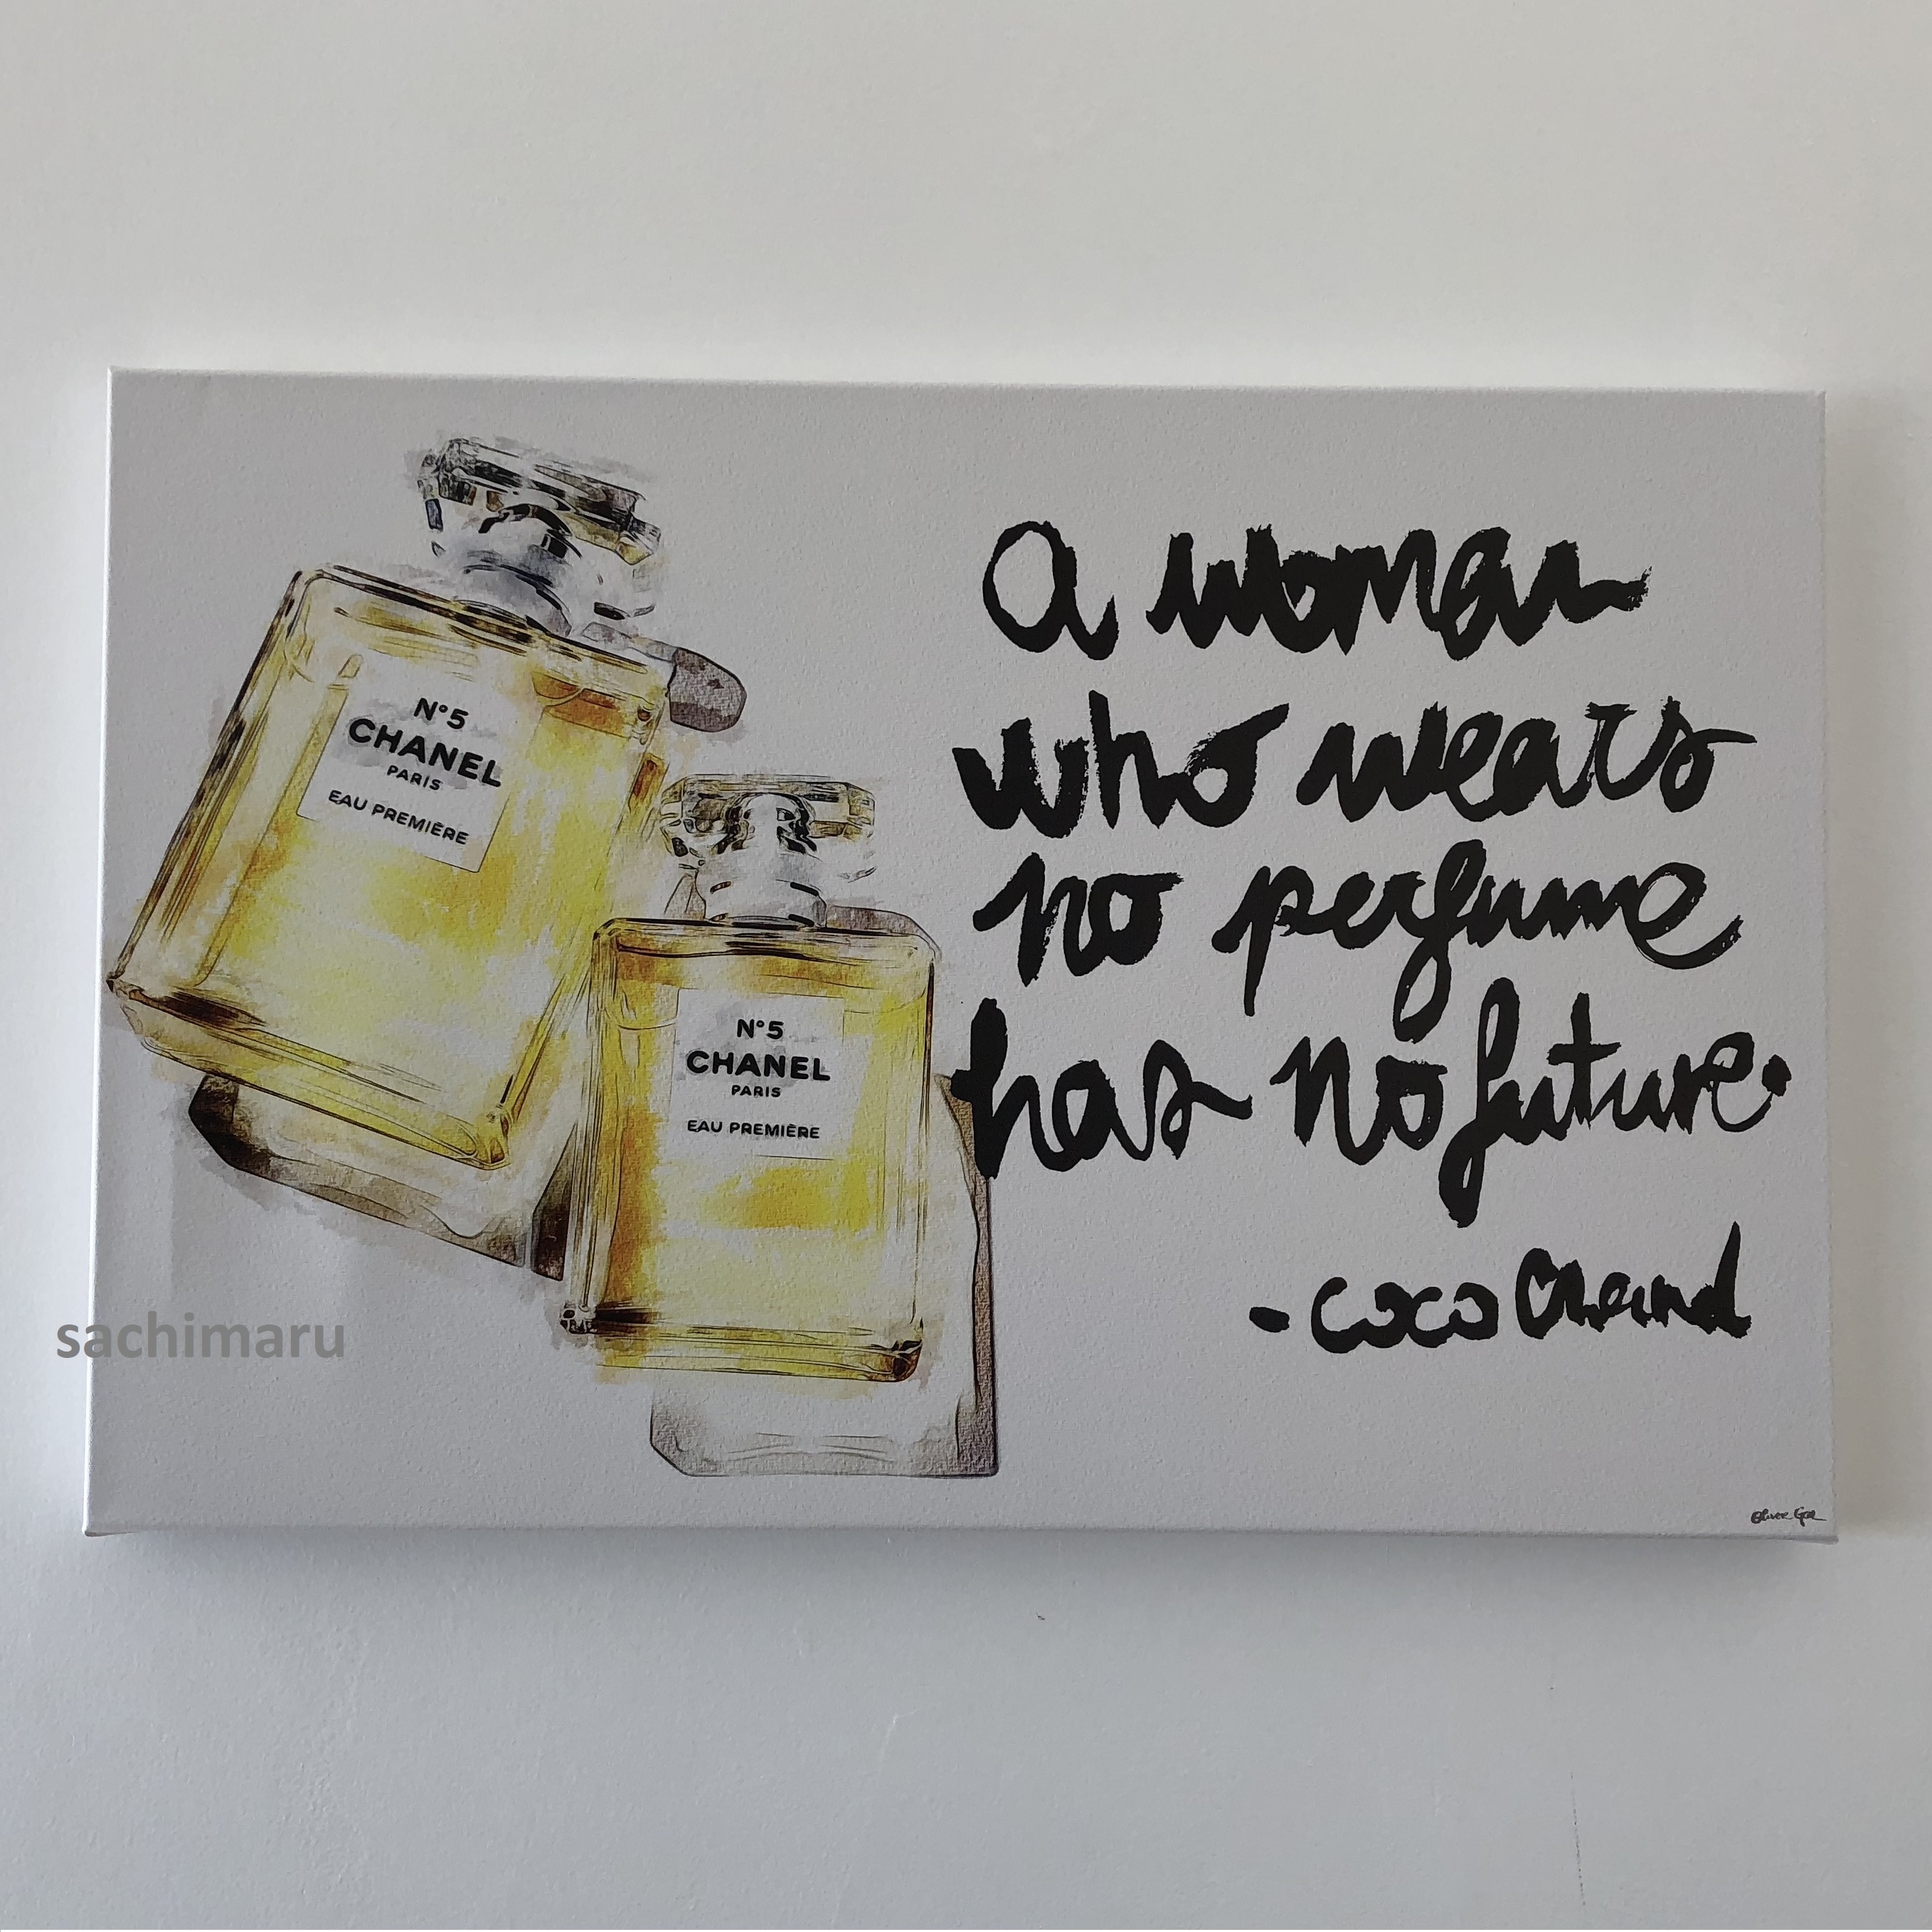 N°5
CHANEL
PARIS
EAU PREMIÈRE
N°5
CHANEL
PARIS
EAU PREMIÈRE
a woman
who wears
no perfume
has no future.
- coco Chanel
sachimaru
Oliver Gal